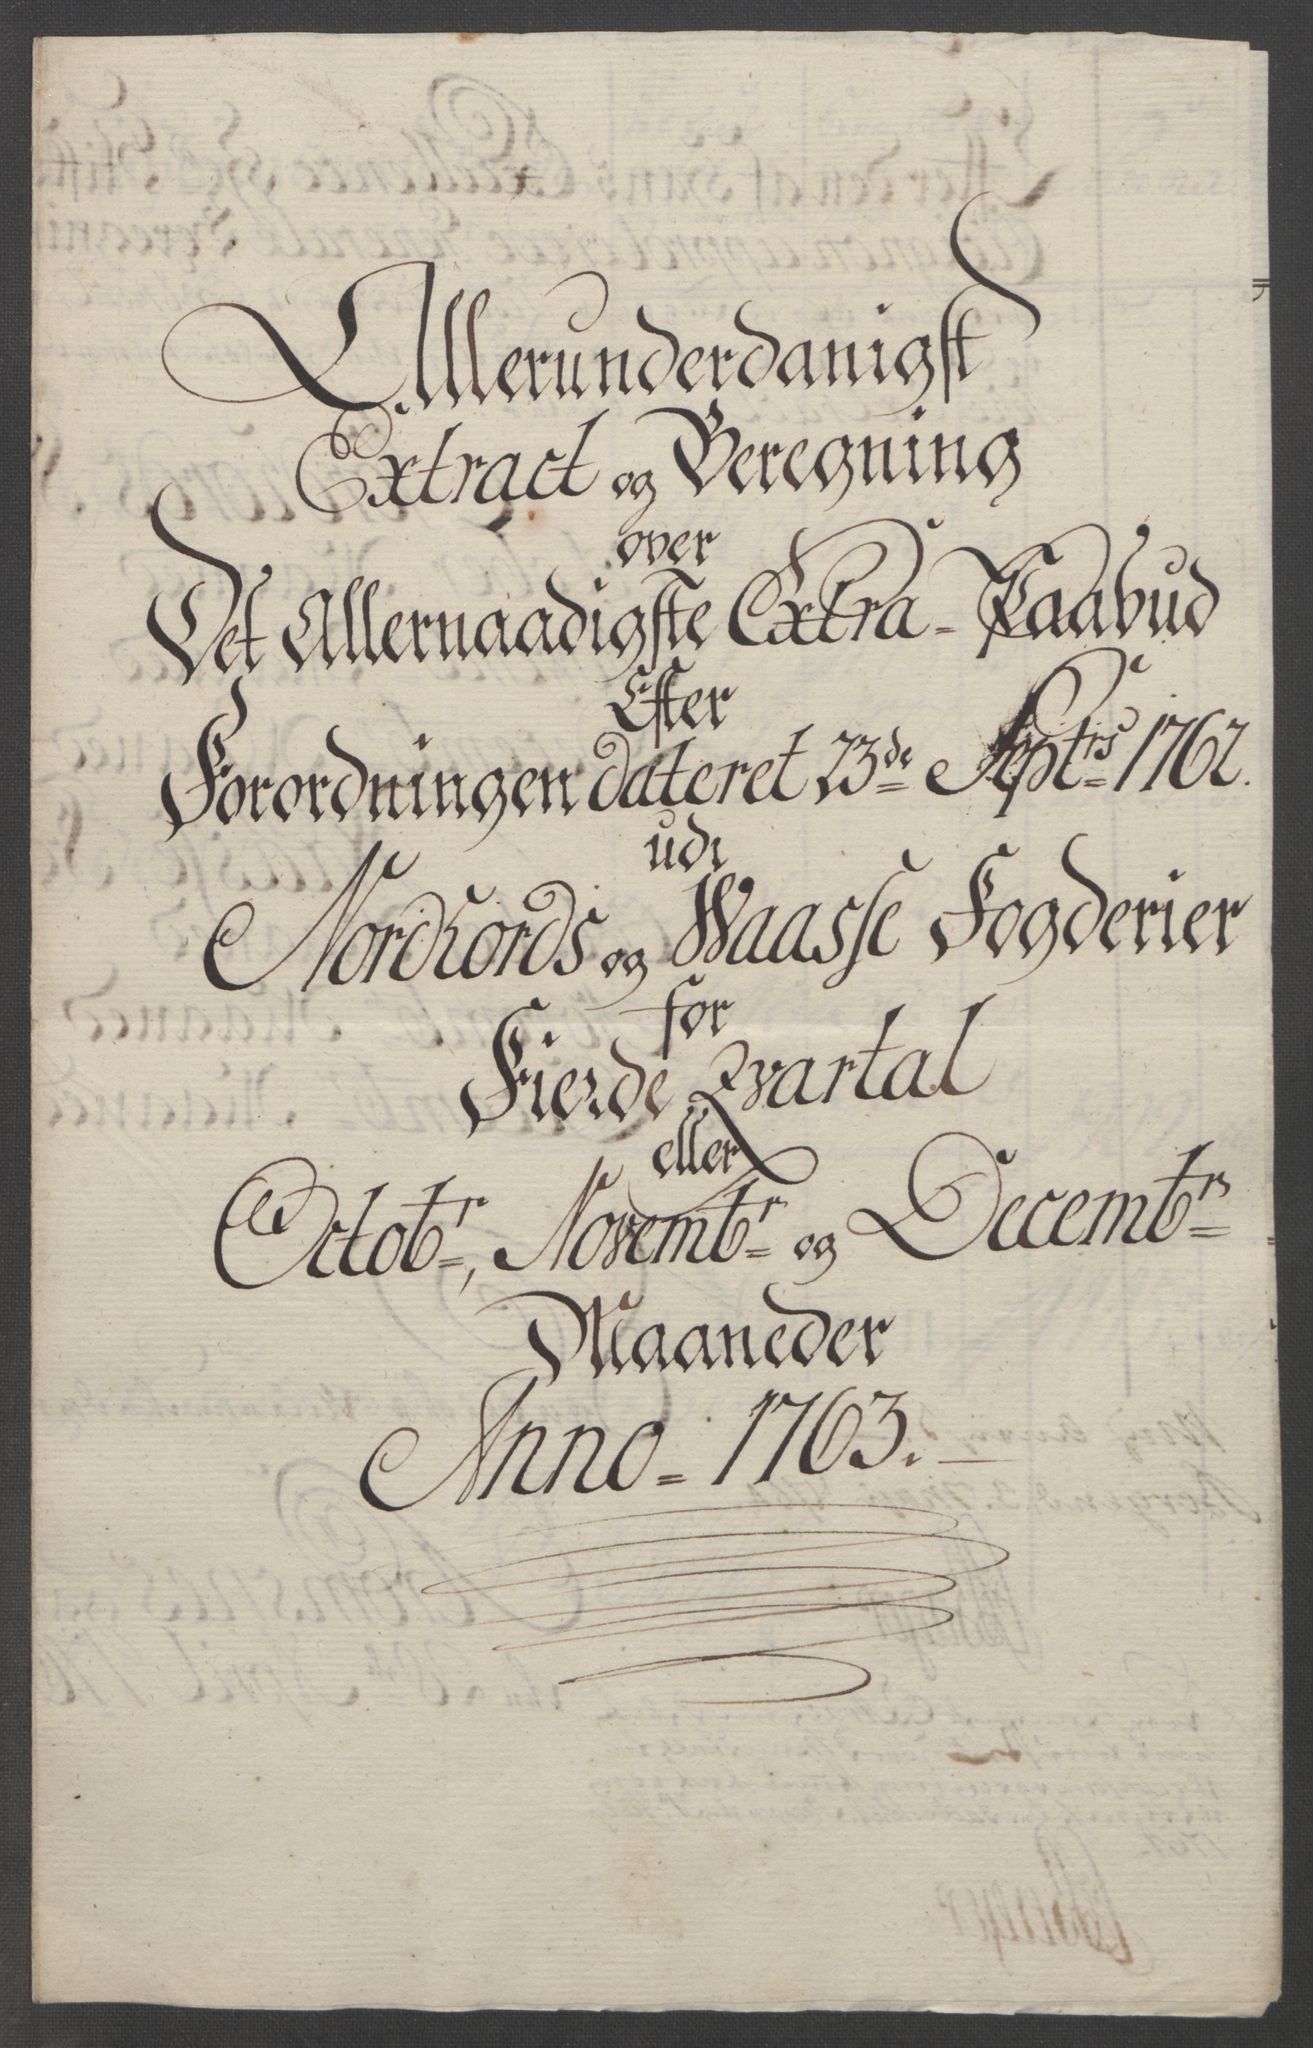 Allerunderdanigst
Extract og Beregning
over
Det Allernaadigste Extra-Paabud
Efter
Forordningen dateret 23de Septrs 1762.
udi
Nordhords og Waasse Fogderier
for
Fierde Qvartal
eller
Octobr, Novembr og Decembrs
Maaneder
Anno 1763.